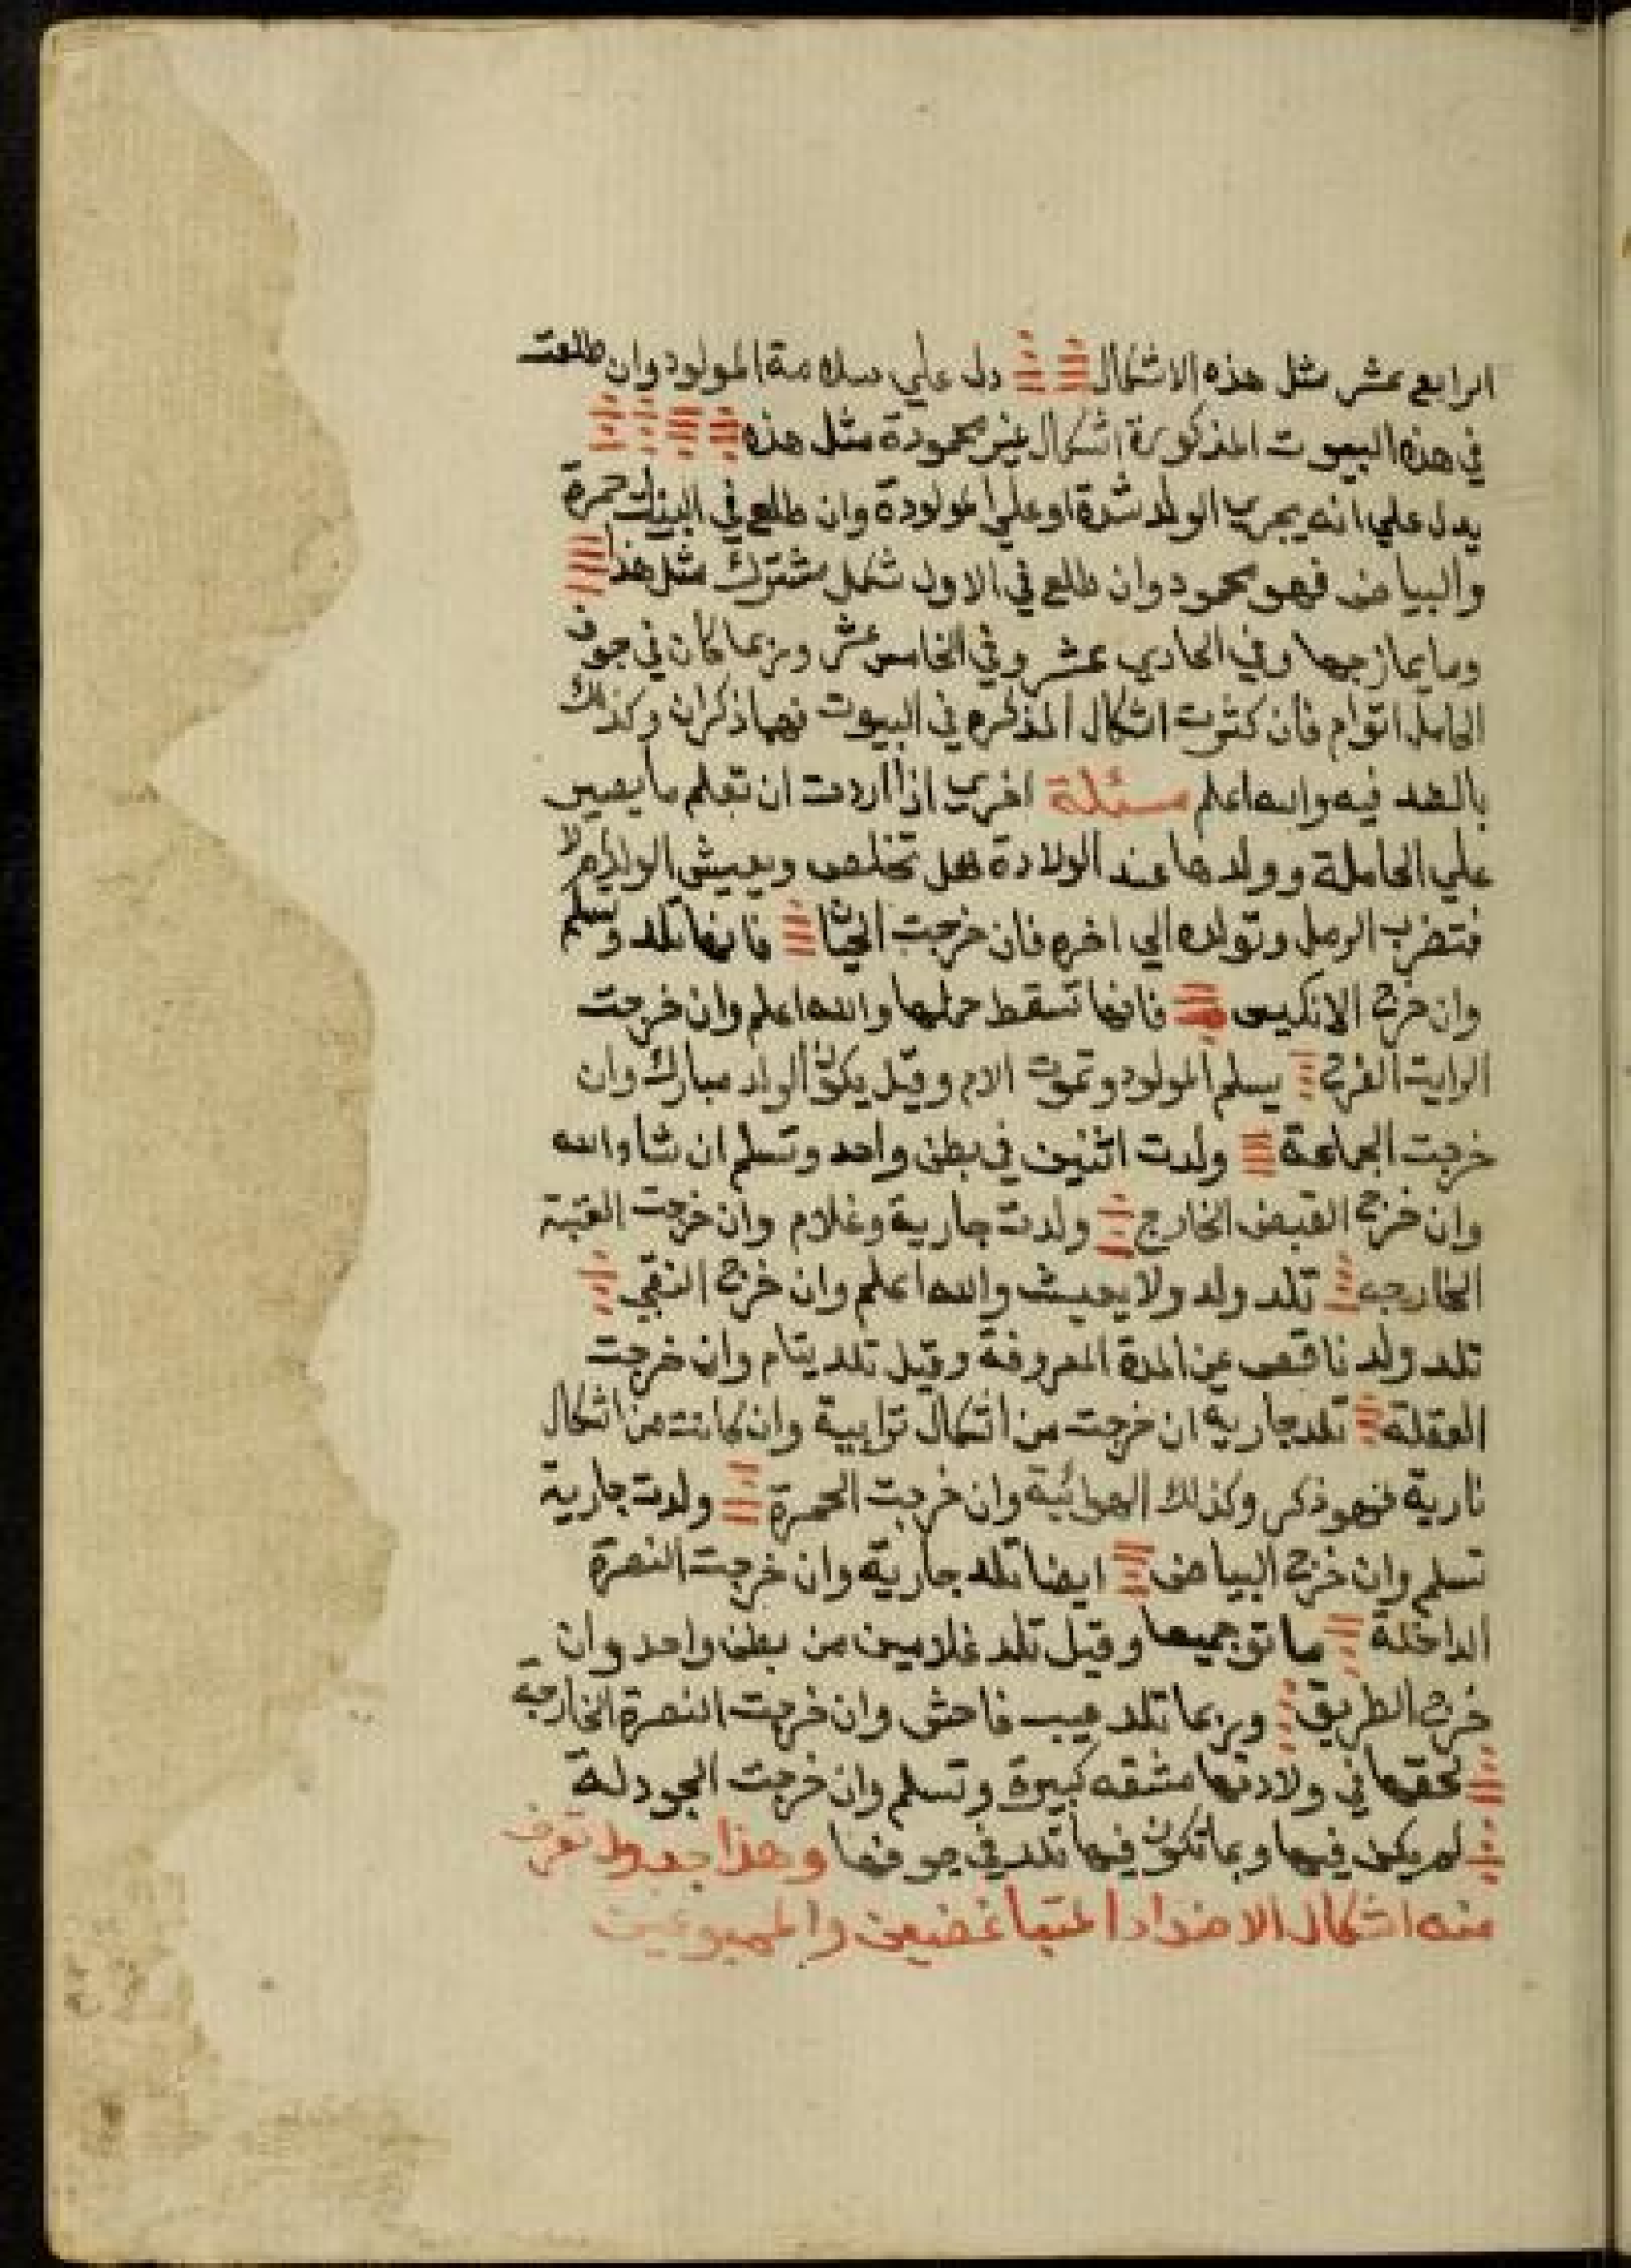 الرابع عشر مثل هذه الاشكال دل علي سلامة المولود وان طلعت
في هذه البيوت المذكورة اشكال غير محمودة مثل هذه
يدل علي انه يجري الولد شدة او علي المولودة وان طلع في البيت حمرة
والبياض فهو محمود وان طلع في الاول شكل مشترك مثل هذا
وما يمازجها وفي الحادي عشر وفي الخامس عشر وربما كان في جوف
الحامل اتوام فان كثرت اشكال المذكره في البيوت فهما ذكران وكذلك
بالضد فيه والله اعلم مسئلة اخري اذا اردت ان تعلم ما يصير
علي الحاملة وولدها عند الولادة هل تخلص ويعيش الولد ام لا
فتضرب الرمل وتولده الي اخره فان خرجت فانها تلد وتسلم
وان خرج الانكيس فانها تسقط حملها والله اعلم وان خرجت
الرايت الفرح يسلم المولود وتموت الام وقيل يكون الولد مبارك وان
خرجت الجماعة ولدت اثنين في بطن واحد وتسلم ان شاء الله
وان خرج القبض الخارج ولدت جارية وغلام وان خرجت العتبة
الخارجه تلد ولد ولا يعيش والله اعلم وان خرج النقي
تلد ولد ناقص عن المدة المعروفة وقيل تلد يتام وان خرجت
العقلة تلد جاريه ان خرجت من اشكال ترابية وان كانت من اشكال
نارية فهو ذكر وكذلك الهوائية وان خرجت الحمرة ولدت جارية
تسلم وان خرج البياض ايضا تلد جارية وان خرجت النصرة
الداخلة ماتو جميعا وقيل تلد غلامين من بطن واحد وان
خرج الطريق وربما تلد عيب فاحش وان خرجت النصرة الخارجه
لحقها في ولادتها مشقه كبيرة وتسلم وان خرجت الجودلة
لم يكن فيها وبما تكون فيها تلد في جوفها وهذا جدول تعرف
منه اشكال الاضداد المتباغضين والمحبوبين